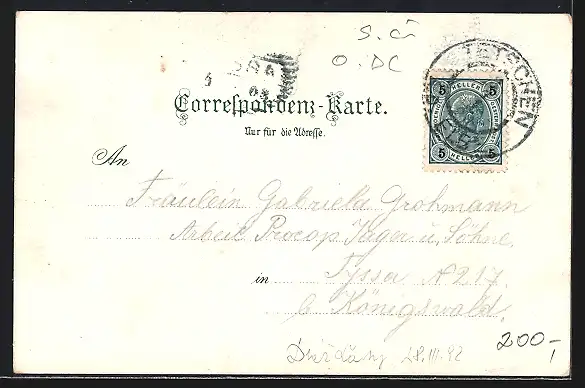 S. Č
O. DC
TETSCHEN
5 HELLER 5
5 HELLER 5
Correspondenz-Karte.
Nur für die Adresse.
An
Fräulein Gabriela Grohmann
Arbeit Procop Jäger u. Söhne,
in Tyssa N 217.
b Königswald.
200,-
28.III.92